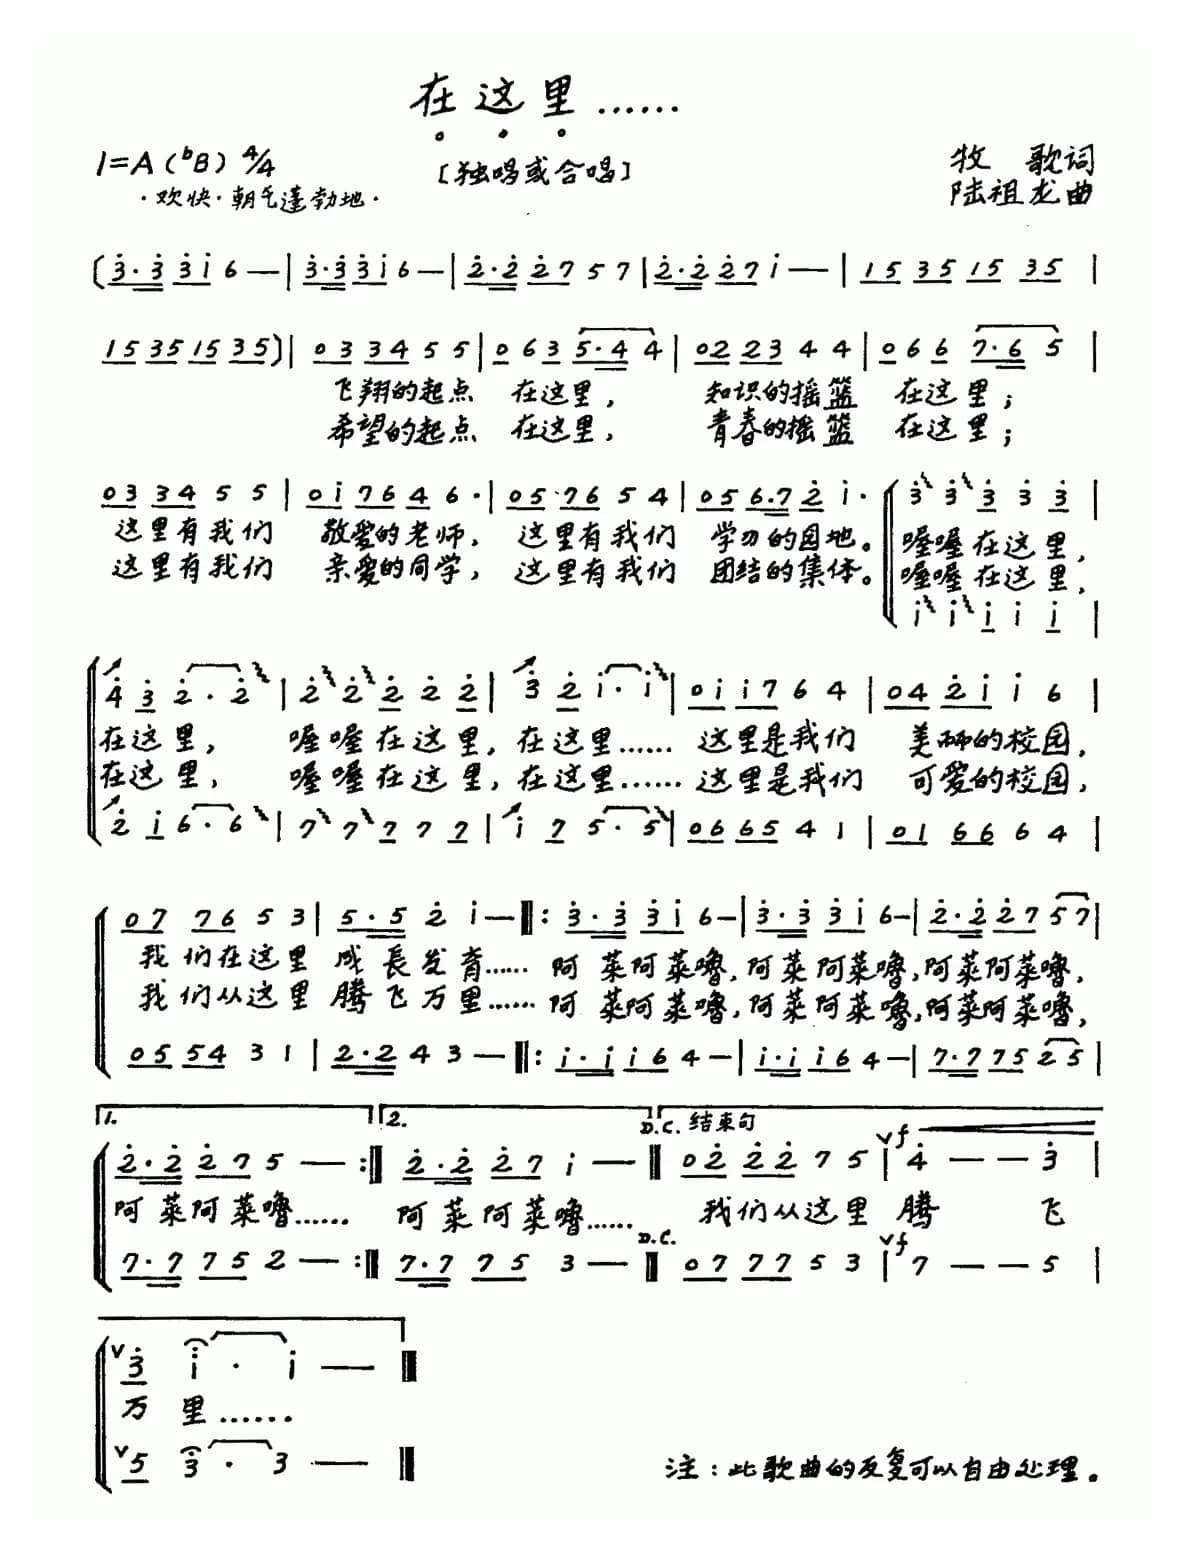 在这里……
1=A（ᵇB）4/4
［独唱或合唱］
牧 歌词
·欢快·朝气蓬勃地·
陆祖龙曲
(3̇·3̇ 3̇i 6 — | 3̇·3̇ 3̇i 6 — | 2̇·2̇ 2̇7 5 7 | 2̇·2̇ 2̇7 i — | 15 35 15 35 |
15 35 15 35) | 03 34 5 5 | 0 63 5·4 4 | 02 23 4 4 | 06 6 7·6 5 |
飞翔的起点 在这里， 知识的摇篮 在这里；
希望的起点 在这里， 青春的摇篮 在这里；
03 34 5 5 | 0i 76 4 6· | 05·76 5 4 | 05 6·7 2̇ i· | 3̇ 3̇ 3̇ 3̇ 3̇ |
这里有我们 敬爱的老师， 这里有我们 学习的园地。 喔喔在这里，
这里有我们 亲爱的同学， 这里有我们 团结的集体。 喔喔在这里，
i i i i i |
4̇ 3̇ 2̇·2̇ | 2̇ 2̇ 2̇ 2̇ 2̇ | 3̇ 2̇ i·i | 0i i7 6 4 | 04 2̇i i 6 |
在这里， 喔喔在这里，在这里…… 这里是我们 美丽的校园，
在这里， 喔喔在这里，在这里…… 这里是我们 可爱的校园，
2̇ i 6·6 | 7 7 7 7 7 | i 7 5·5 | 06 65 4 1 | 01 66 6 4 |
07 76 5 3 | 5·5 2̇ i — ‖: 3̇·3̇ 3̇i 6 — | 3̇·3̇ 3̇i 6 — | 2̇·2̇ 2̇7 5 7 |
我们在这里 成長发育……阿莱阿莱噜，阿莱阿莱噜，阿莱阿莱噜，
我们从这里 腾飞万里……阿莱阿莱噜，阿莱阿莱噜，阿莱阿莱噜，
05 54 3 1 | 2·2 4 3 — ‖: i·i i6 4 — | i·i i6 4 — | 7·7 75 2 5 |
1. 2. D.C. 结束句
2̇·2̇ 2̇7 5 — :‖ 2̇·2̇ 2̇7 i — ‖ 02̇ 2̇2̇ 7 5 | ∨f 4̇ — — 3̇ |
阿莱阿莱噜…… 阿莱阿莱噜…… 我们从这里 腾 飞
D.C.
7·7 75 2 — :‖ 7·7 75 3 — ‖ 07 77 5 3 | ∨f 7 — — 5 |
∨3̇ i · i — ‖
万 里……
∨5 3 · 3 — ‖
注：此歌曲的反复可以自由处理。